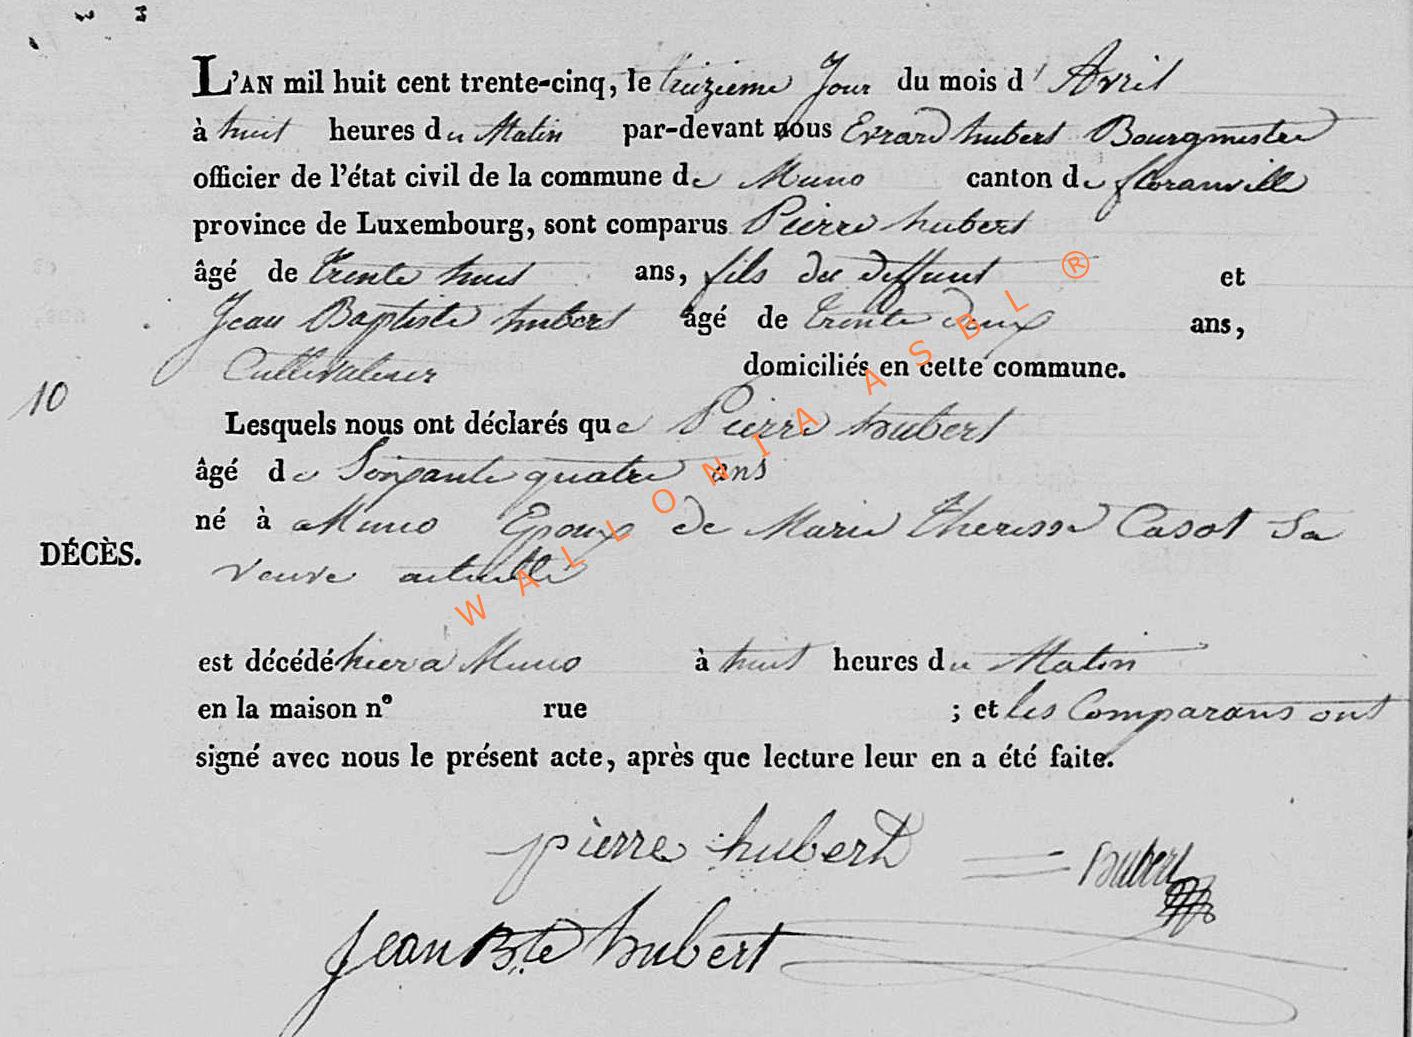 L'AN mil huit cent trente-cinq, le treizieme Jour du mois d' Avril
à huit heures du Matin par-devant nous Evrard hubert Bourgmestre
officier de l'état civil de la commune de Muno canton de floranville
province de Luxembourg, sont comparus Pierre hubert
âgé de trente huit ans, fils du deffunt et
Jean Baptiste hubert âgé de trente deux ans,
Cultivateur domiciliés en cette commune.
10
Lesquels nous ont déclarés que Pierre hubert
âgé de Soixante quatre ans
né à Muno Epoux de Marie theresse Casot Sa
DÉCÈS.
veuve actuelle
est décédé hier a Muno à huit heures du Matin
en la maison n° rue ; et les Comparans ont
signé avec nous le présent acte, après que lecture leur en a été faite.
pierre hubert
hubert
Jean Bte hubert
WALLONIA ASBL ®